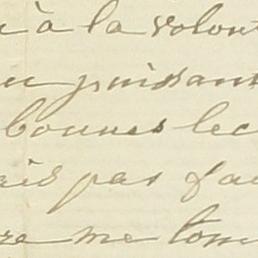 à la volon
puissan
bonnes lec
pas fai
me tom